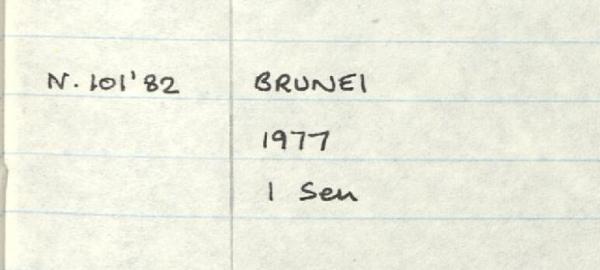 N. 101'82 BRUNEI
1977
1 Sen